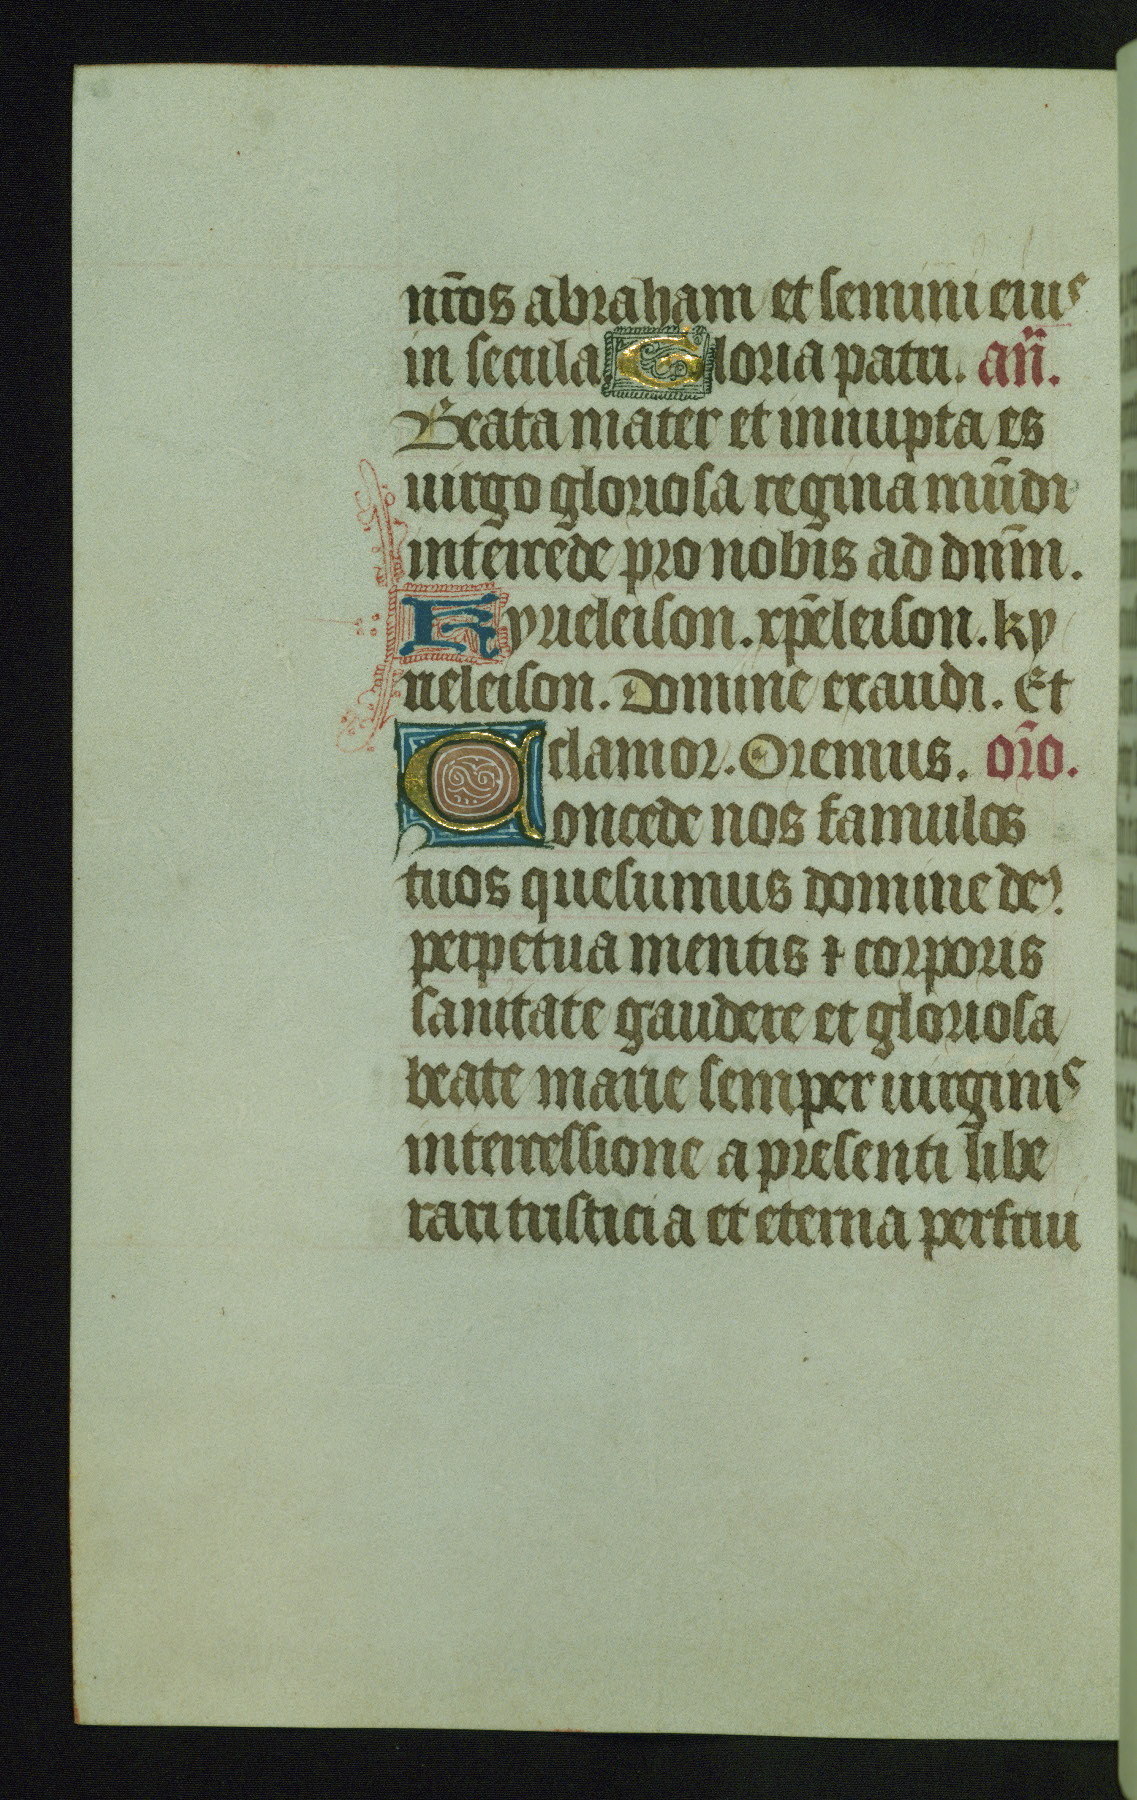 nr̄os abraham et semini eius
in secula Gloria patri. an̄.
Beata mater et innupta es
uirgo gloriosa regina mūdi
intercede pro nobis ad dn̄m.
Kyrieleison. xp̄eleison. ky
rieleison. Domine exaudi. Et
clamor. Oremus. or̄o.
Concede nos famulos
tuos quesumus domine de⁹.
perpetua mentis ⁊ corporis
sanitate gaudere et gloriosa
beate marie semper uirginis
intercessione a presenti libe
rari tristicia et eterna perfrui